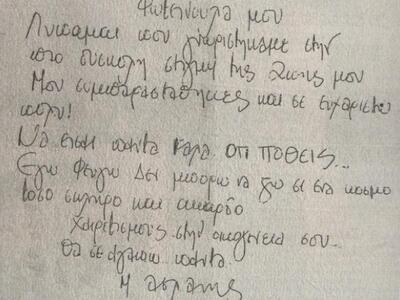 Φωτεινουλα μου
Λυπαμαι που γνωριστηκαμε στην
πιο δυσκολη στιγμη της ζωης μου
Μου συμπαρασταθηκες και σε ευχαριστω
πολυ!
Να εισαι παντα καλα οτι ποθεις...
Εγω Φευγω Δεν μπορω να ζω σε ενα κοσμο
τοσο σκληρο και
Χαιρετισμους στην οικογενεια σου..
Θα σε αγαπαω παντα.
Η